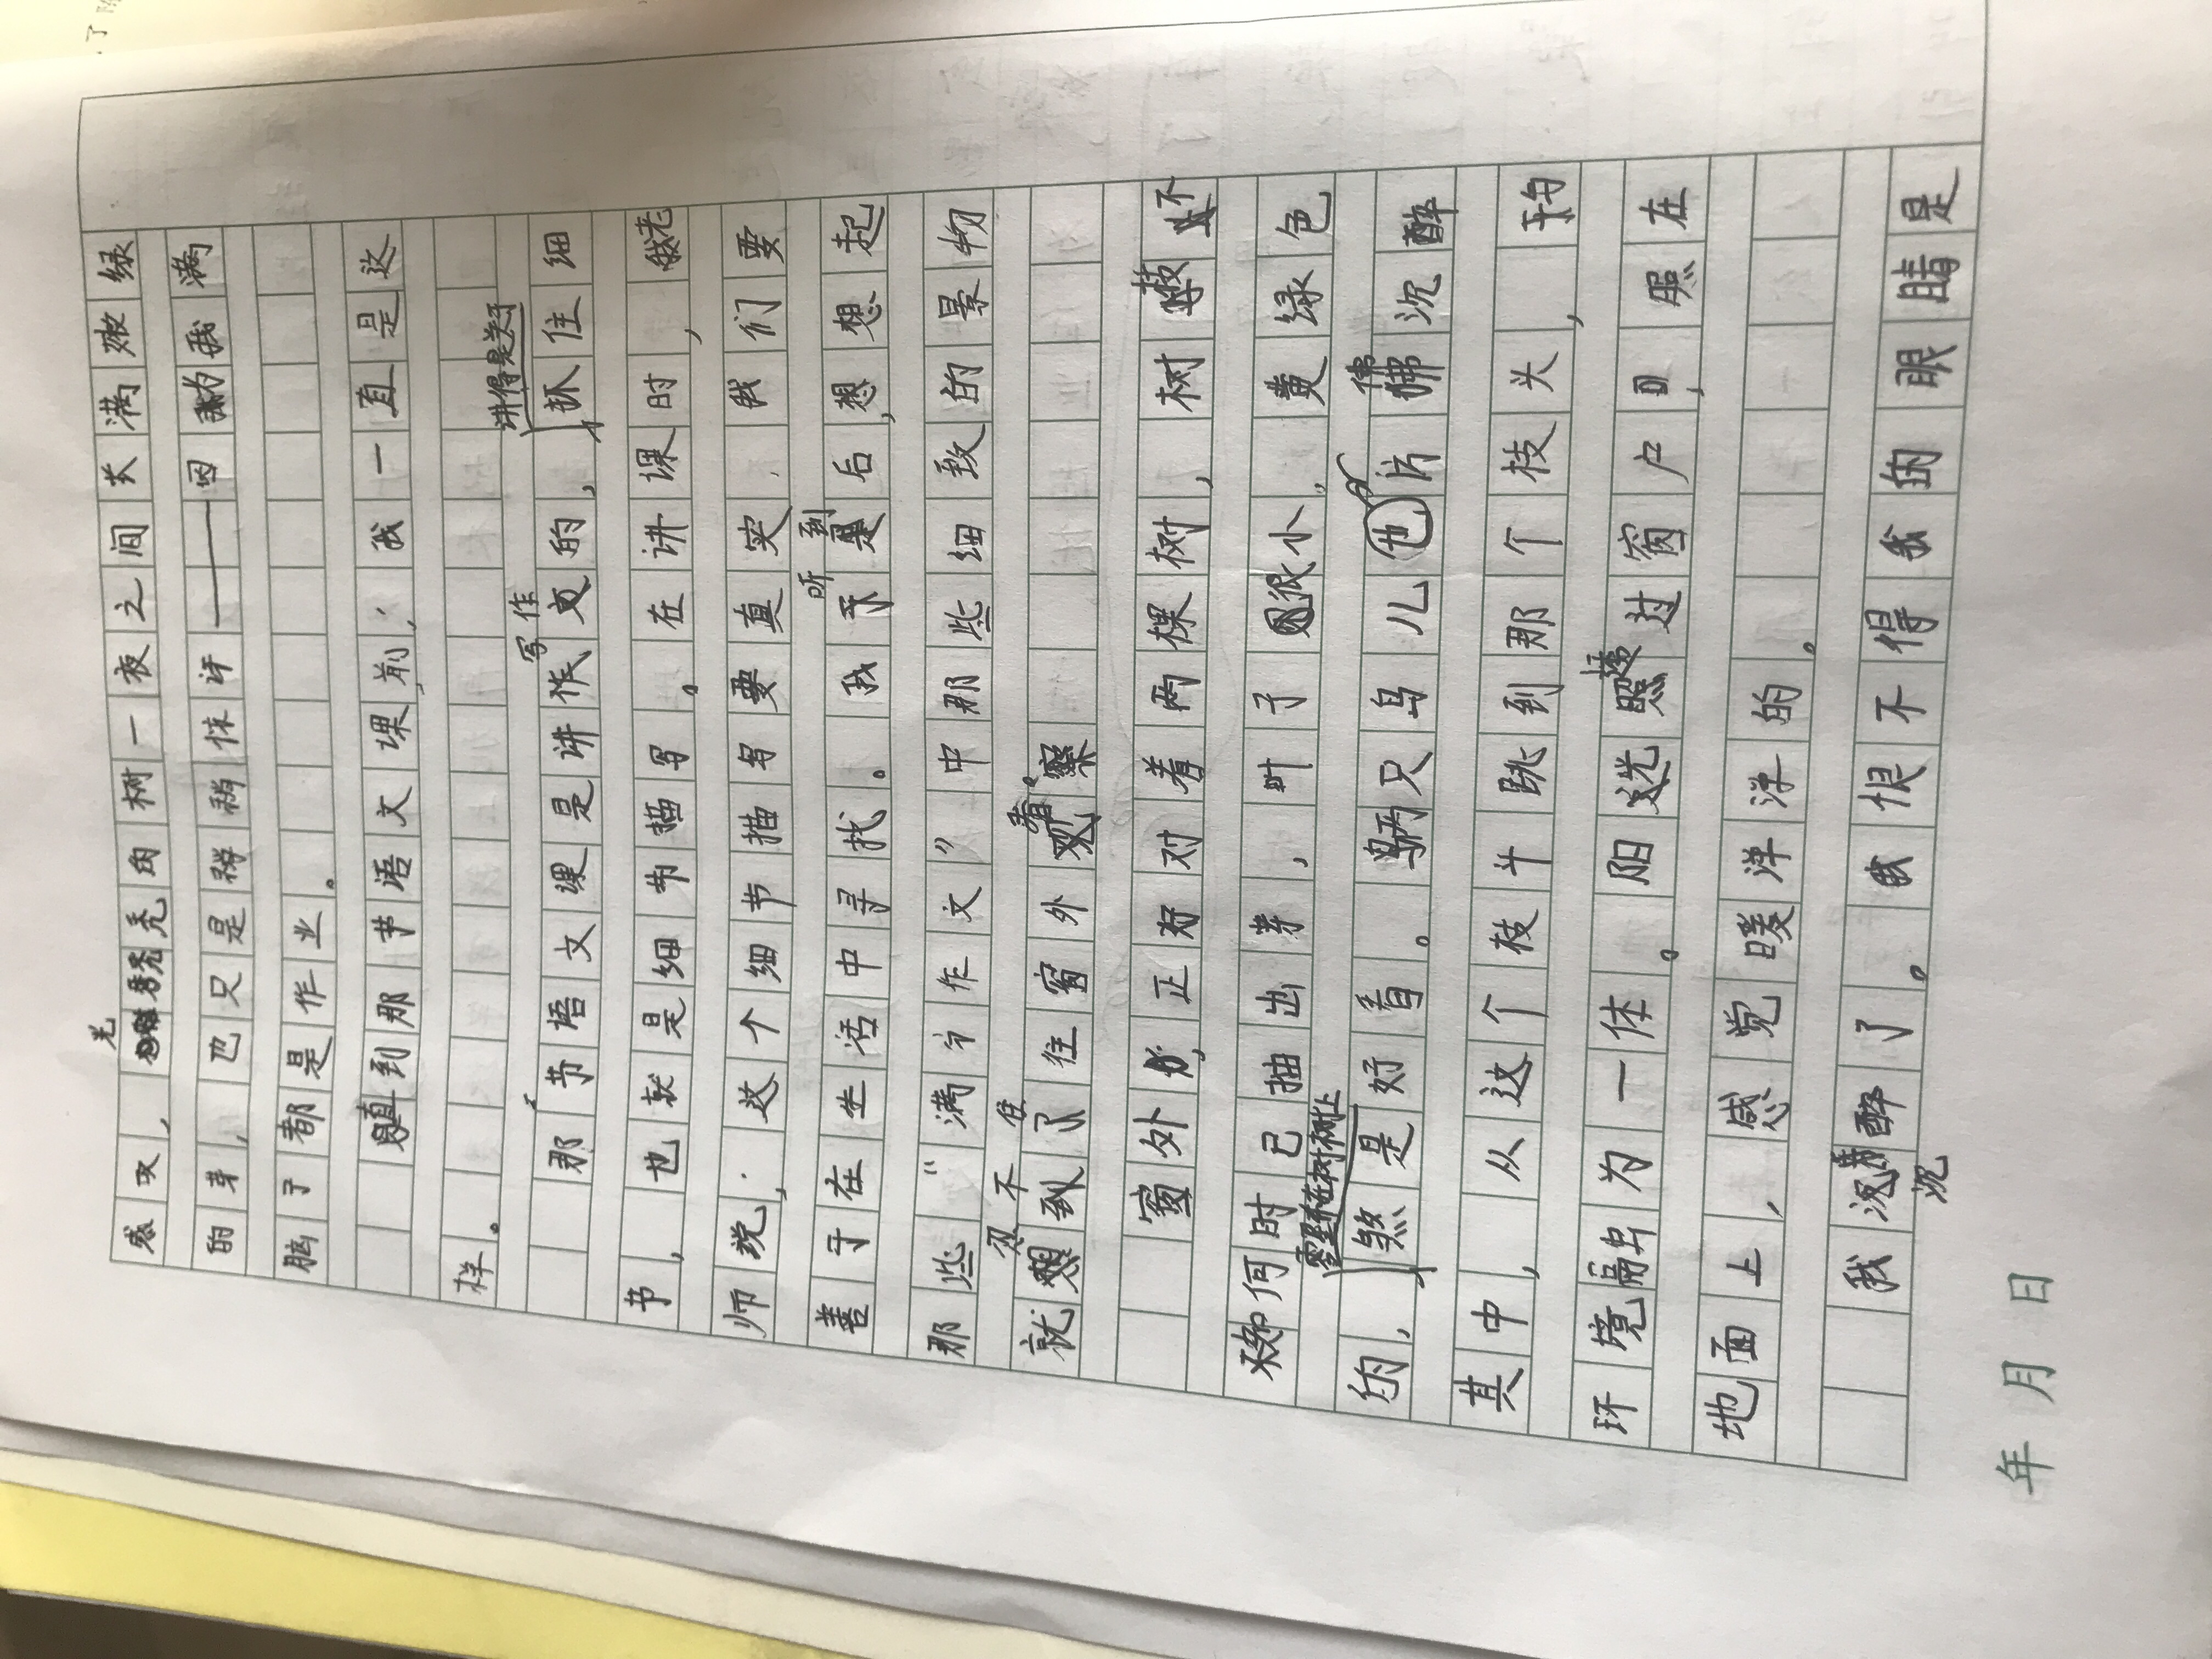 感叹，光秃秃的树一夜之间长满嫩绿
的芽，也只是稍稍怵讶——因为我满
脑子都是作业。
直到那节语文课前，我一直是这
样。
那节语文课是讲写作文的，讲得是关于抓住细
节，也就是细节描写。在讲课时，老
师说，这个细节描写要真实，我们要
善于在生活中寻找。我听到后想，想想起
那些“满分作文”中那些细致的景物
就忍不住往窗外看。
窗外，正好对着两棵树，树不
知何时已抽出芽，叶子很小，黄绿色
的，煞是好看。两只鸟儿仿佛沉醉
其中，从这个枝头跳到那个枝头，与
环境融为一体。阳光透过窗户，照在
地面上，感觉暖洋洋的。
我沉醉了。我恨不得我的眼睛是
年 月 日